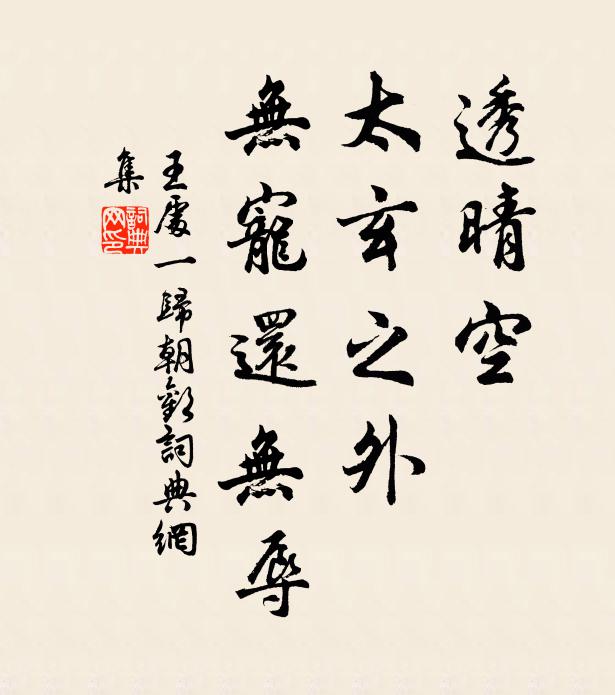 透晴空
太玄之外
無寵還無辱
王處一歸朝歡詞典網
集
詞典
網印